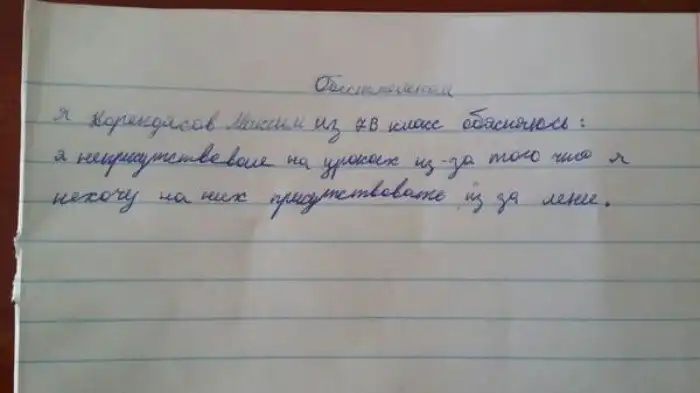 я Корендясов Максим из 7В класс обяснялось:
я неприсутствовале на уроках из-за того что я
нехочу на них присутствовать из за лени.